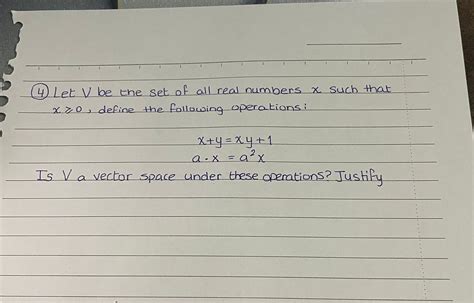 ④ Let V be the set of all real numbers x such that
x ⩾ 0, define the following operations:
x+y = xy+1
a·x = a²x
Is V a vector space under these operations? Justify